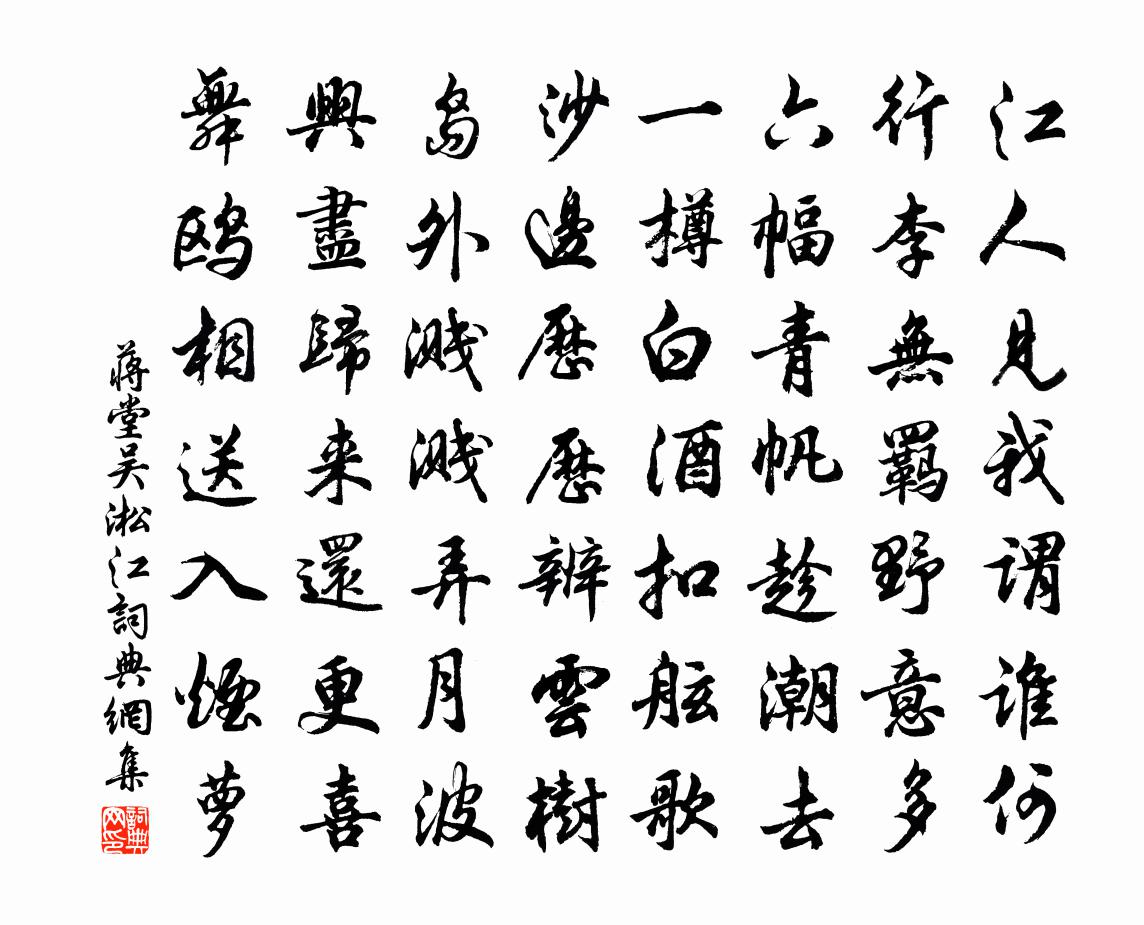 江人見我謂誰何
行李無羈野意多
六幅青帆趁潮去
一樽白酒扣舷歌
沙邊歷歷辨雲樹
島外濺濺弄月波
興盡歸来還更喜
舞鸥相送入煙萝
蒋堂吴淞江詞典網集
詞典网印